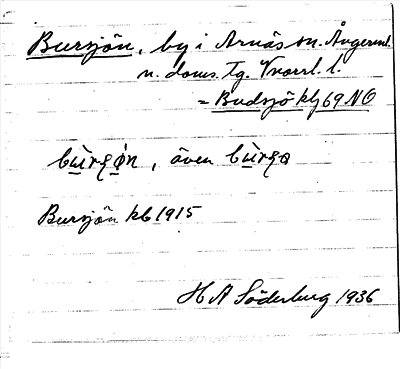 Bursjön, by i Arnäs sn. Ångerml.
n. doms. Tg. Vnorrl. l.
= Budsjö klj 69 NO
bùrʂø̀n, även bùrʂə
Bursjön kb 1915
H A Söderberg 1936